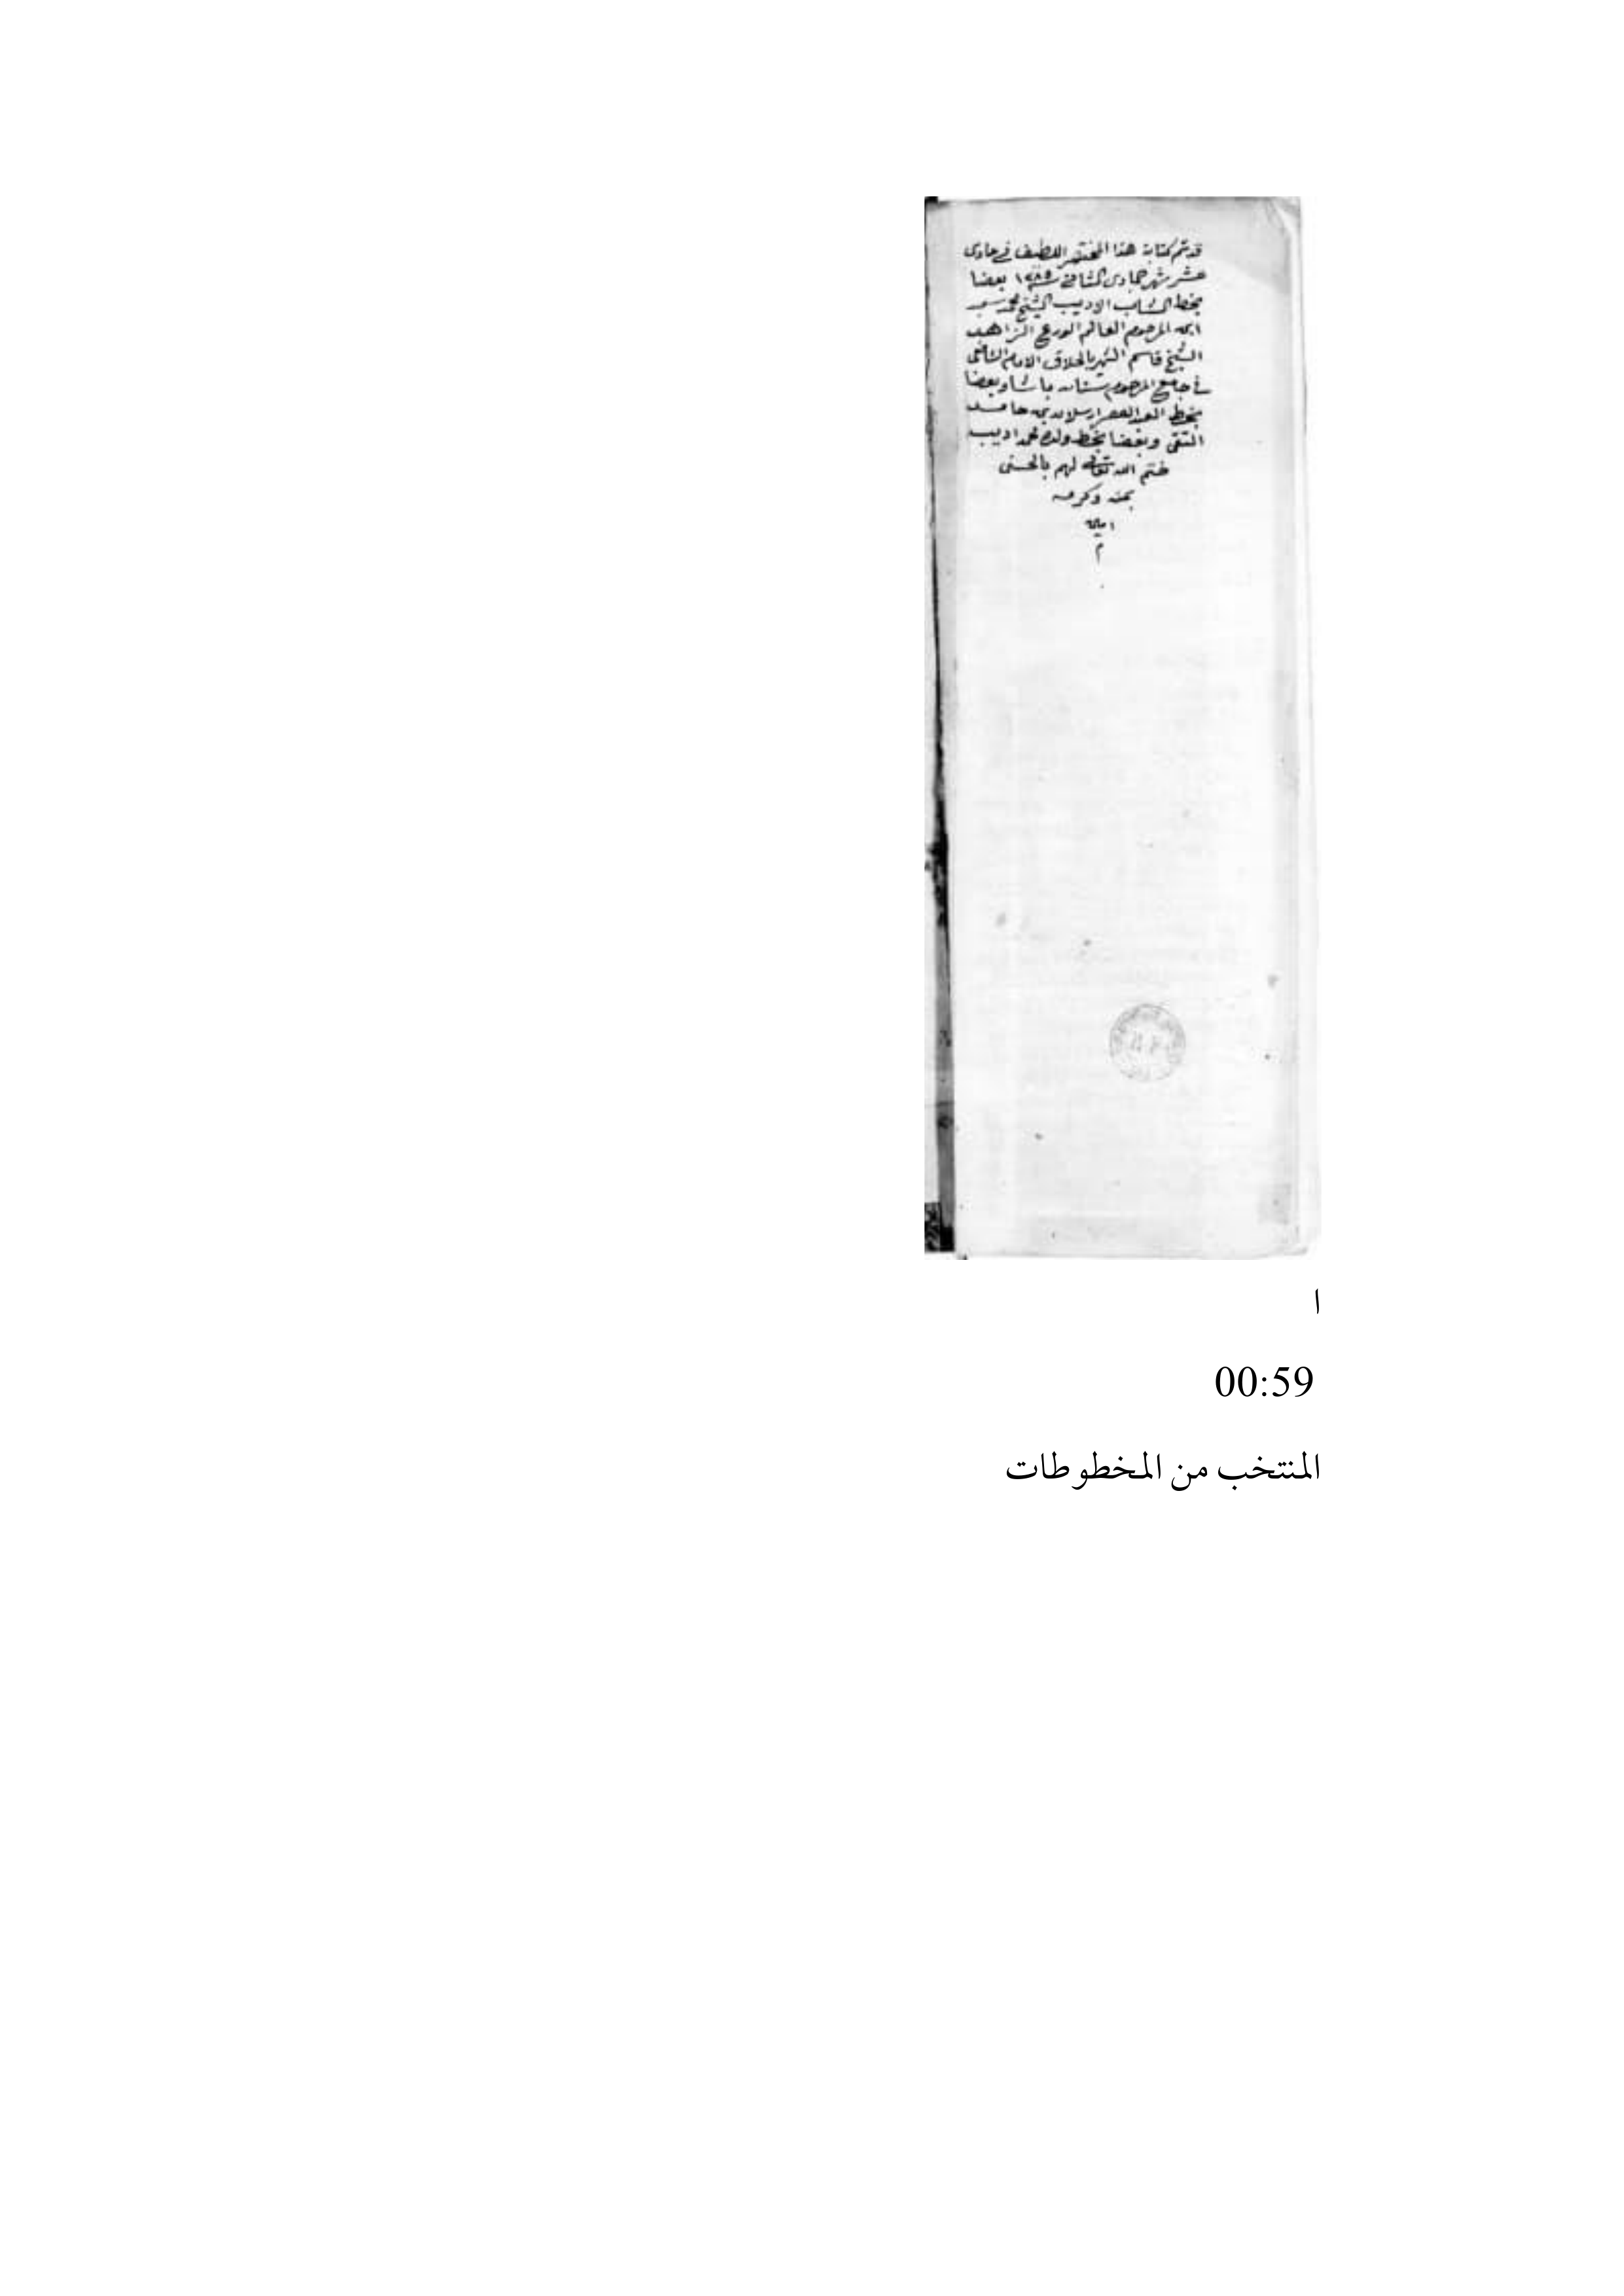 قد تم كتابة هذا المختصر اللطيف في حادى
عشر شهر جمادى الثاني سنة ١٢٨٥ بعضا
بخط الشاب الاديب الشيخ محمد سعيد
ابن المرحوم العالم الورع الزاهد
الشيخ قاسم الشهير بالحلاق الامام الشافعى
في جامع المرحوم سنان باشا وبعضا
بخط العبد ارسلان بن حامد
التقى وبعضا بخط ولده محمد اديب
ختم الله تعالى لهم بالحسنى
بمنه وكرمه
امين
م
ا
00:59
المنتخب من المخطوطات